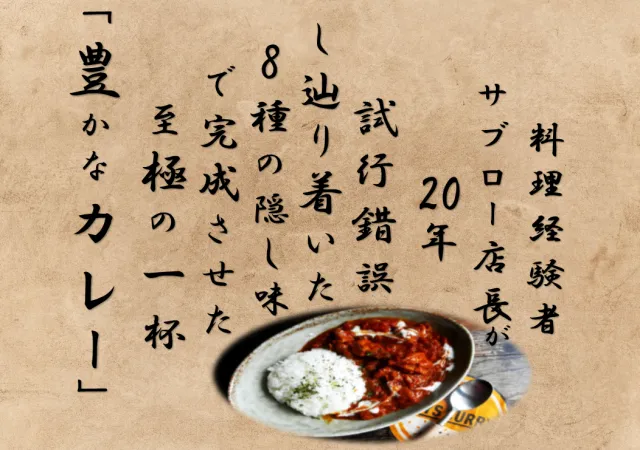 料理経験者
サブロー店長が
20年
試行錯誤
し辿り着いた
8種の隠し味
で完成させた
至極の一杯
「豊かなカレー」